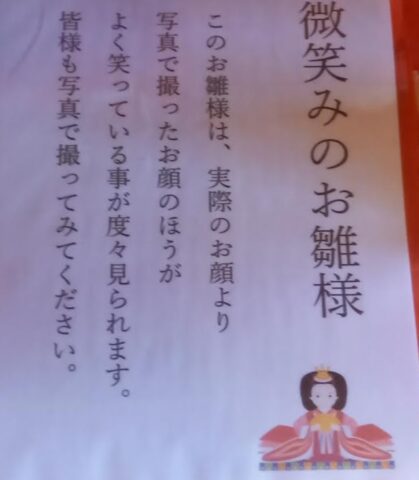 微笑みのお雛様
このお雛様は、実際のお顔より
写真で撮ったお顔のほうが
よく笑っている事が度々見られます。
皆様も写真で撮ってみてください。